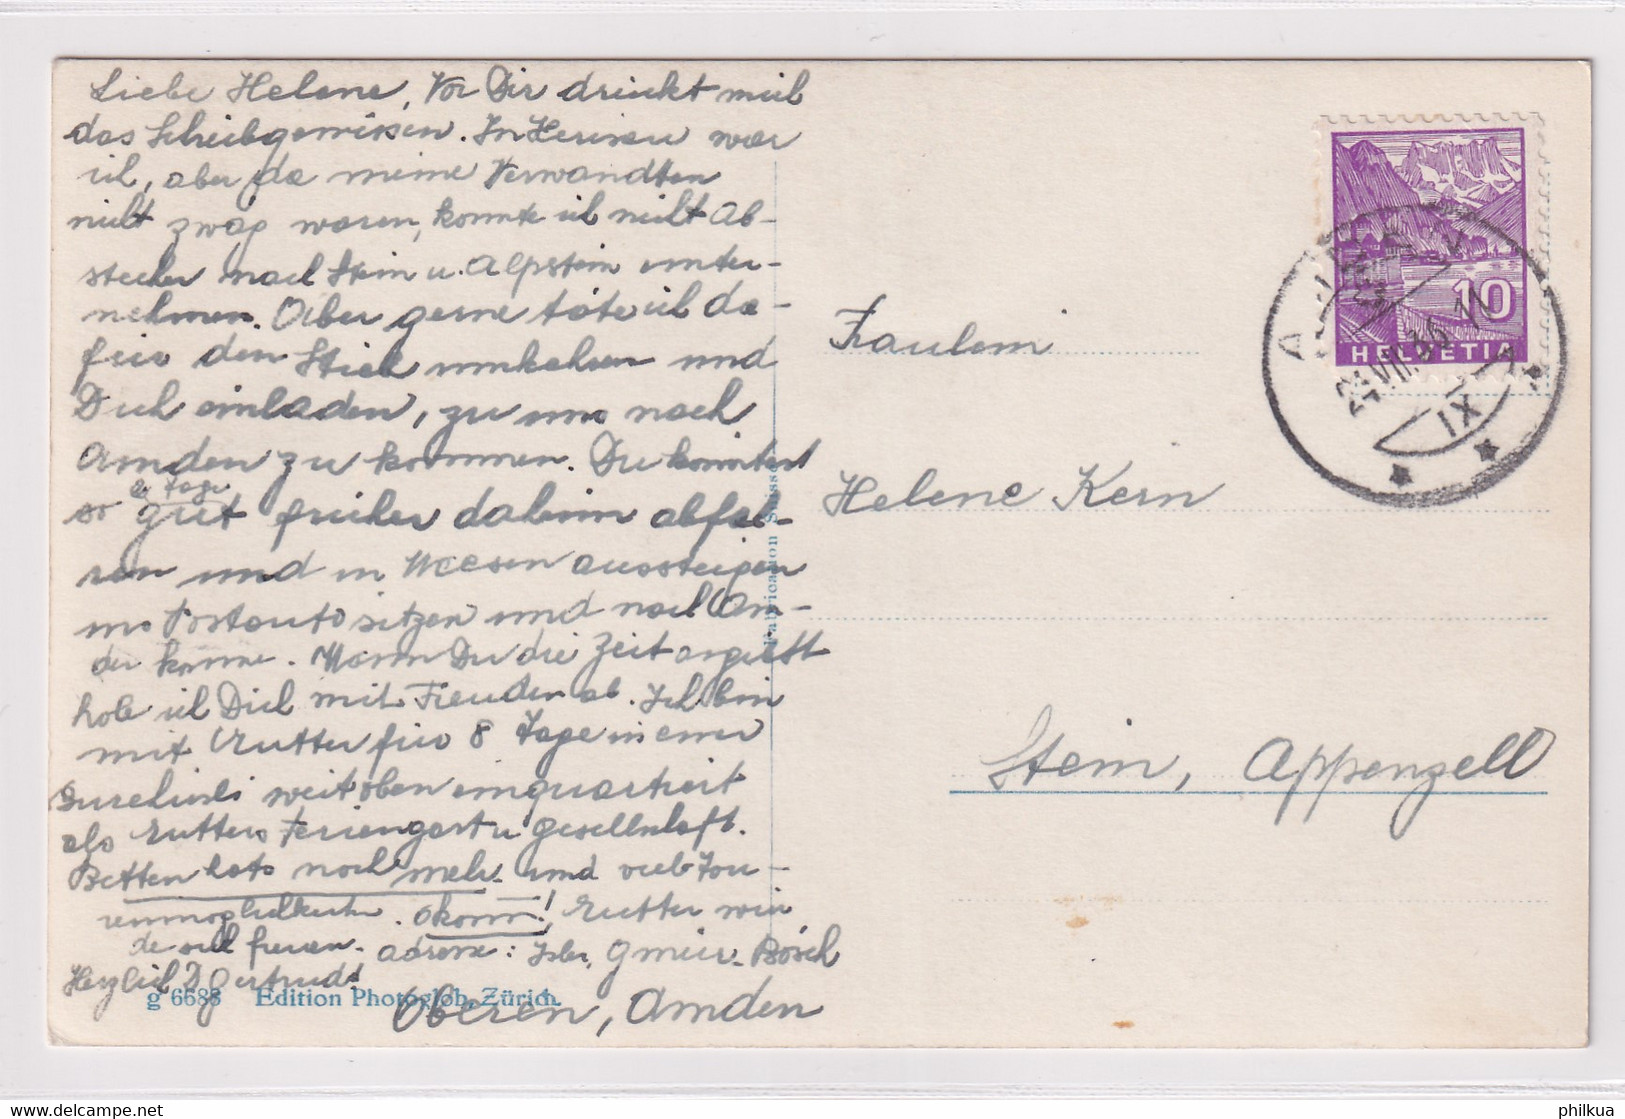 Liebe Helene, Vor Dir drückt mich
das Schreibgewissen. In Herisau war
ich, aber da meine Verwandten
nicht zwäg waren, konnte ich nicht Ab-
stecher nach Stein u. Alpstein unter-
nehmen. Aber gerne täte ich da-
für den Stiel umkehren und
Dich einladen, zu uns nach
Amden zu kommen. Du könntest
2 Tage
so gut früher daheim abfah-
ren und in Weesen aussteigen
ins Postauto sitzen und nach Am-
den komme. Wenn Du die Zeit angibst
hole ich Dich mit Freuden ab. Ich bin
mit Mutter für 8 Tage in einer
weit oben einquartiert
als Mutters Feriengast u gesellschaft.
Betten hats noch mehr und viele Tou-
renmöglichkeiten. O komm! Mutter wür
de sich freuen. Adresse: Gmür-Bösch
Herzlich D Gertrud.
Oberen, Amden
g 6688 Edition Photoglob, Zürich.
Fabrication Suisse
HELVETIA
10
VIII. 35
IX
Fräulein
Helene Kern
Stein, Appenzell
philkua
www.delcampe.net